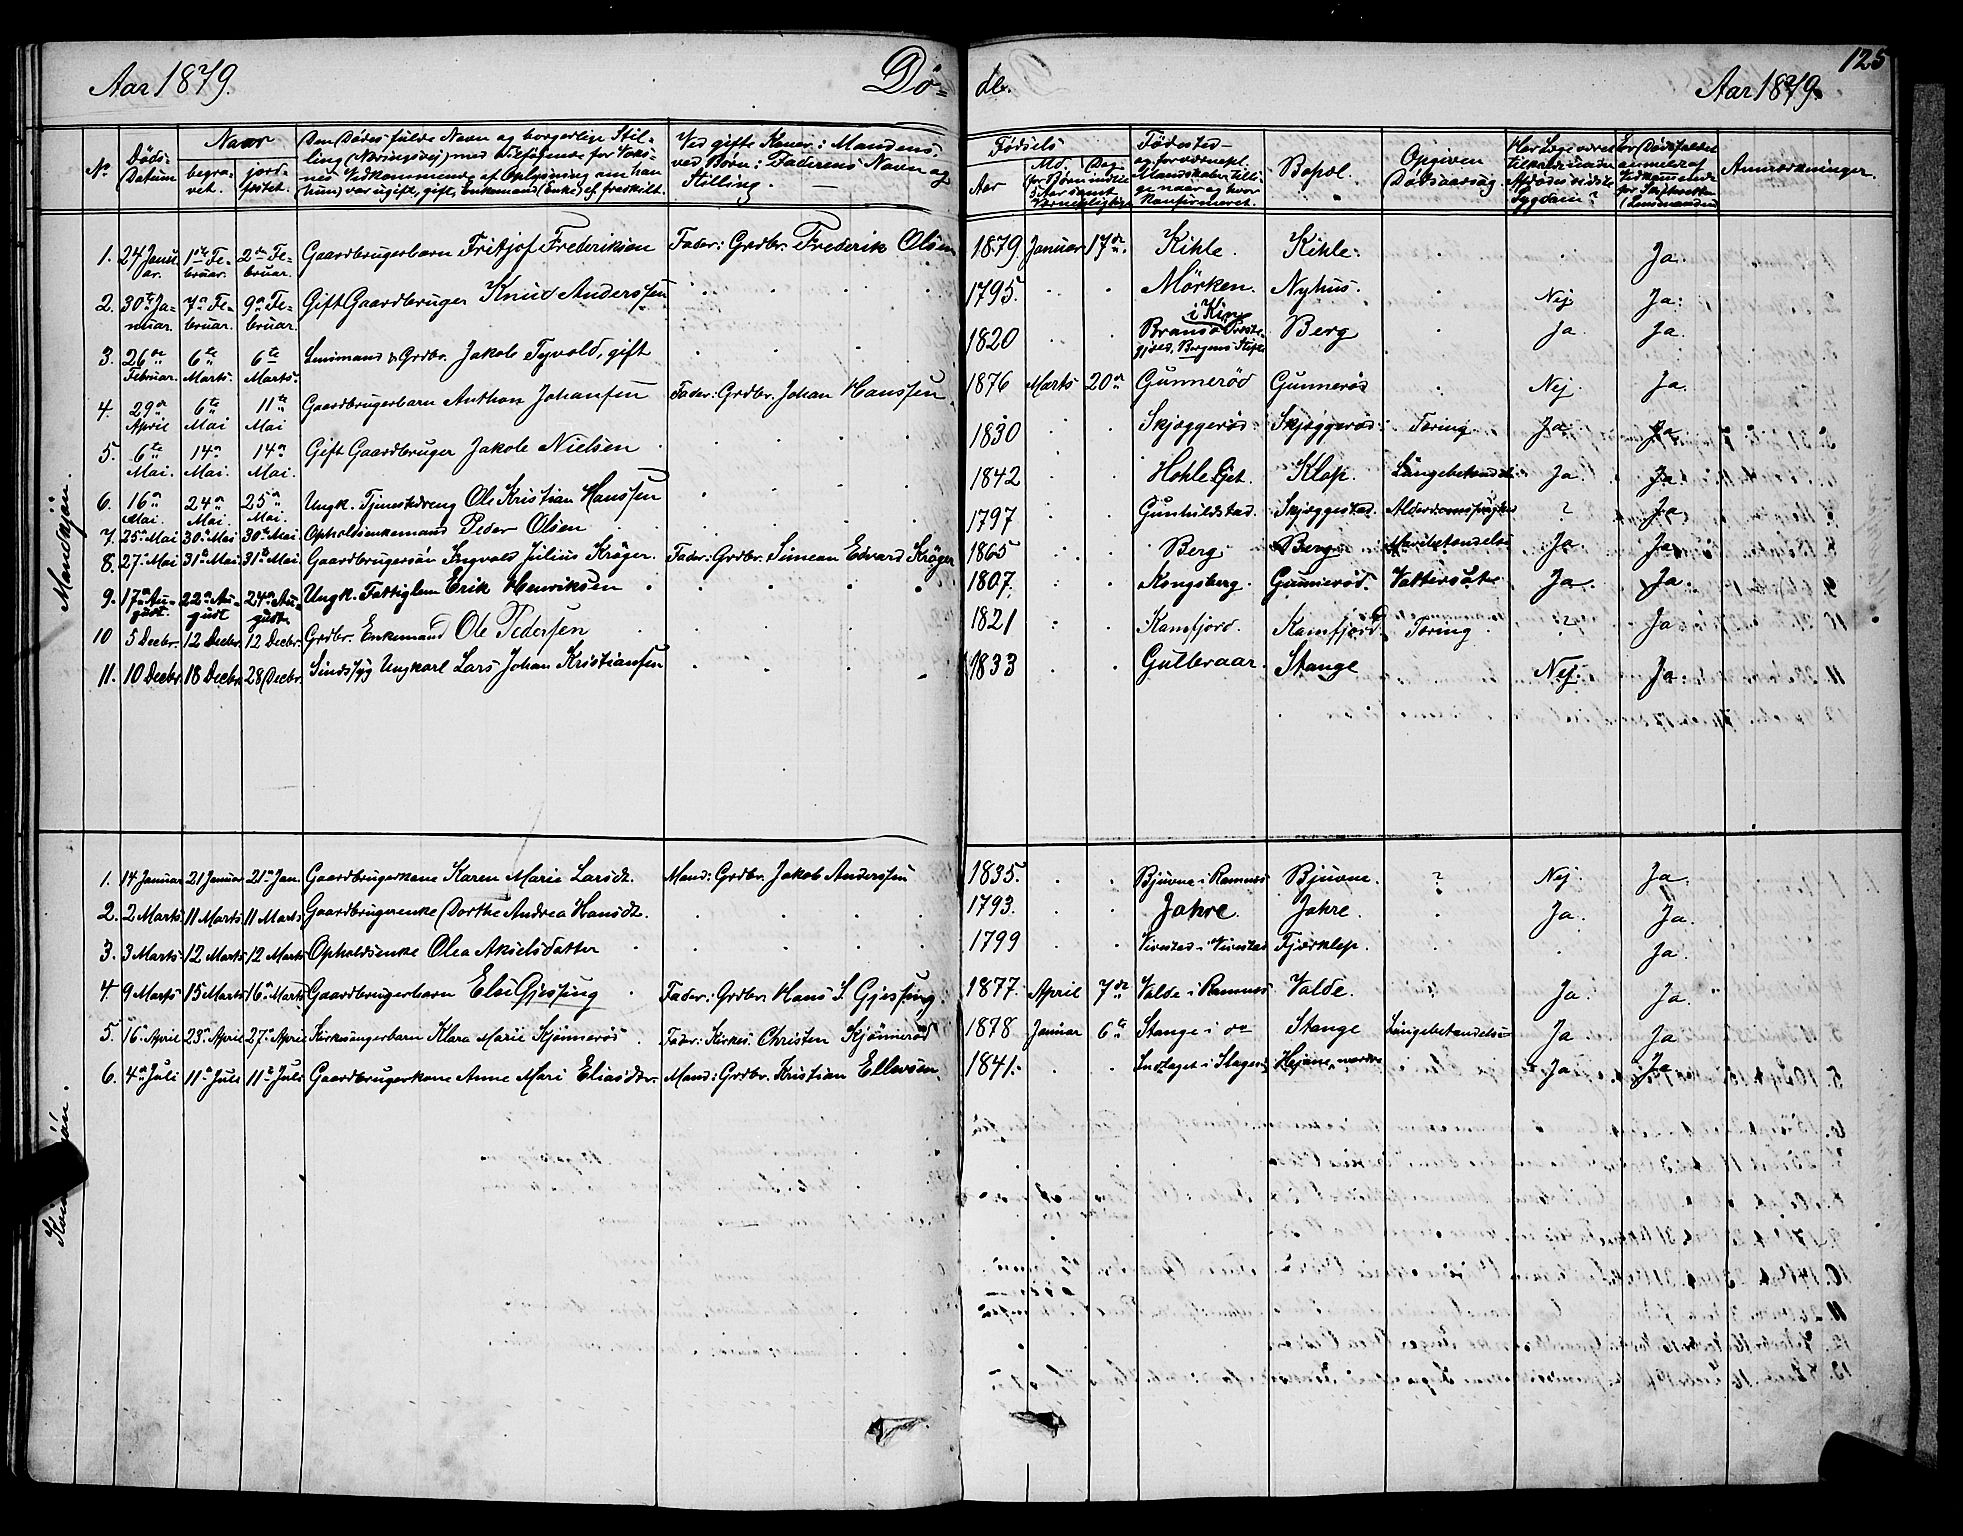 125
Aar 1879. Dö- de. Aar 1879.
No Døds-Datum Naar begra-vet. jord-fæstet. Den Dødes fulde Navn og borgerlige Stil-ling (Næringsvej) med Tilføjende for Voks-nes Vedkommende af Oplysning om han (hun) var ugift, gift, Enkemand (Enke) el. fraskilt. Ved gifte Koner: Mandens, ved Børn: Faderens Navn og Stilling. Fødsels Aar Md. Dag Fødested Bopæl. Opgiven Dødsaarsag Anmærkninger.
Mandkjön.
1. 24 Janu-ar. 1ste Fe-bruar. 2den Fe-bruar. Gaardbrugerbarn Fritjof Frederiksen Fader: Grdbr. Frederik Olsen 1879. Januar 17de. Kihle. Kihle. Ja.
2. 30te Ja-nuar. 7de Fe-bruar. 9de Fe-bruar. Gift Gaardbruger Knud Anderssen 1795. Mörken. Nyhus. Nej Ja.
3. 26de Februar. 6te Marts. 6te Marts. Lensmand & Grdbr. Jakob Tyvold, gift 1820 Bergens Stift Berg Ja. Ja.
4. 29de April 6te Mai 11te Mai Gaardbrugerbarn Anthon Johansen Fader: Grdbr. Johan Hanssen 1876 Marts 20de Gunneröd Gunneröd Nej. Ja.
5. 6te Mai. 14de Mai. 14de Mai. Gift Gaardbruger Jakob Nielsen 1830 Skjæggeröd Skjæggeröd Tæring Ja Ja
6. 16de Mai. 24de Mai. 25de Mai. Ungk. Tjenestedreng Ole Kristian Hanssen 1842 Hohle Klop. Lungebetændelse Ja. Ja.
7. 25de Mai 30te Mai 30te Mai Opholdsenkemand Peder Olsen 1797 Gunhildstad. Skjæggestad. Alderdomssvaghed ? Ja
8. 27de Mai 31te Mai 31te Mai Gaardbrugersön Ingvald Julius Kröger. Fader: Grdbr. Simean Edvard Kröger 1865 Berg. Berg Ja. Ja.
9. 17de Au-gust. 22de Au-gust 24de Au-gust. Ungk. Fattiglem Erik Henriksen 1807. Kongsberg. Gunneröd. Vattersot Ja. Ja.
10 5 Decbr. 12 Decbr. 12 Decbr. Grdbr. Enkemand Ole Pedersen 1821 Kamfjord. Kamfjord. Tæring ? Ja
11. 10 Decbr. 18 Decbr. 28 Decbr. Sindssyg Ungkarl Lars Johan Kristiansen 1833 Gulbraar. Stange Nej. Ja.
1. 14 Januar 21 Januar 21de Jan. Gaardbrugerkone Karen Marie Larsdt. Mand: Grdbr. Jakob Anderssen 1835. Bjuvne i Ramnes Bjuvne. ? Nej. Ja.
2. 2 Marts 11 Marts 11 Marts Gaardbrugerenke Dorthe Andrea Hansdt. 1793. Jahre. Jahre. Ja. Ja.
3. 3 Marts 12 Marts 12 Marts Opholdsenke Olea Akselsdatter 1799 Vivestad i Vivestad Fjærklep. Ja.
4. 9 Marts 15 Marts 16de Marts Gaardbrugerbarn Else Gjessing Fader: Grdbr. Hans S. Gjessing. 1877. April 7de Valde i Ramnes Valde. Ja. Ja.
5. 16de April 23de April 27de April Kirkesangerbarn Klara Marie Kjönneröd Fader: Kirkes. Christen Kjönneröd 1878 Januar 6te Stange i do Stange Lungebetændelse Ja Ja
6. 4de Juli 11te Juli 11te Juli Gaardbrugerkone Anne Mari Eliasdtr. Mand: Grdbr. Kristian Ellevsen. 1841. Ja Ja